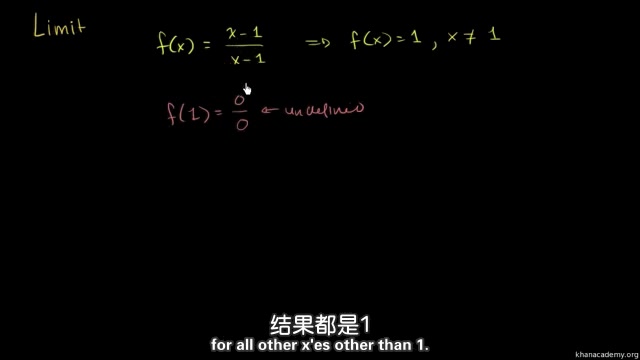 Limit
f(x) = x-1 / x-1 ⇒ f(x) = 1 , x ≠ 1
f(1) = 0 / 0 ← undefined
结果都是1
for all other x'es other than 1.
khanacademy.org